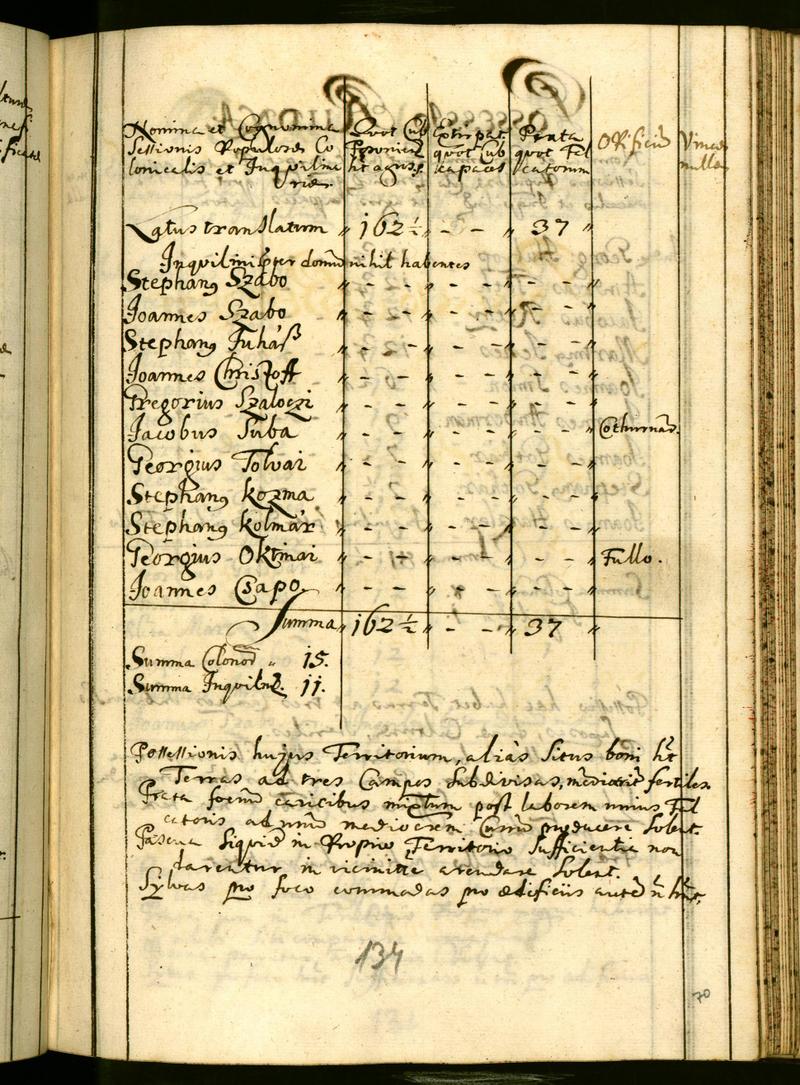 Nomina et Cognomina
Sessionis Populosae Co
lonicalis et Inquilina
riae.
Quot Cub
Posonien
ht agros
Extirpat
quot Cub
capaces
Prata
quot Fal
catorum
Officiu
Vineas
nullas
Latus translatum " 162½ " - - " 37 "
Inquilini pter domu nihil habentes
Stephang Szabo " - - " - - " - - "
Joannes Szabo " - - " - - " - - "
Stephang Juhasz " - - " - - " - - "
Joannes Christoff " - - " - - " - - "
Gregorius Szaloczi " - - " - - " - - "
Jacobus Suba " - - " - - " - - " Cothurnar.
Georgius Tolvai " - - " - - " - - "
Stephang Kozma " - - " - - " - - "
Stephang Kolmár " - - " - - " - - "
Georgius Oktinai " - - " - - " - - " Fullo.
Joannes Csapo " - - " - - " - - "
Summa " 162½ " - - " 37 "
Summa Colonor " 15.
Summa Inquilinor. 11.
Possessionis hujus Territorium, aliàs situs boni ht
Terras ad tres Campos subdivisas, mediocrit fertiles
Prata foenu caricibus mixtum post laborem unius Fal
catoris ad unu mediocrem Curru producere solent.
Pascua siquid in Proprio Territorio sufficientia non
darentur in vicinitte arendare solent.
Sylvas pro foco commodas pro aedificiis aute n hnt.
134
70